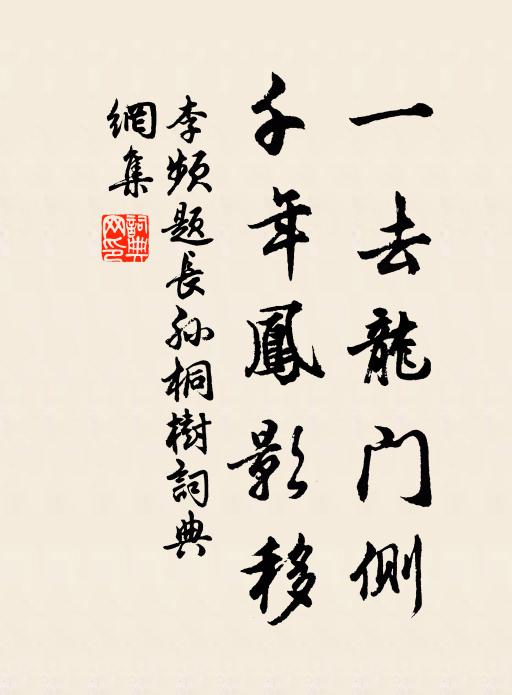 一去龍门側
千年鳳影移
李頻題長孙桐樹詞典
網集
詞典网印